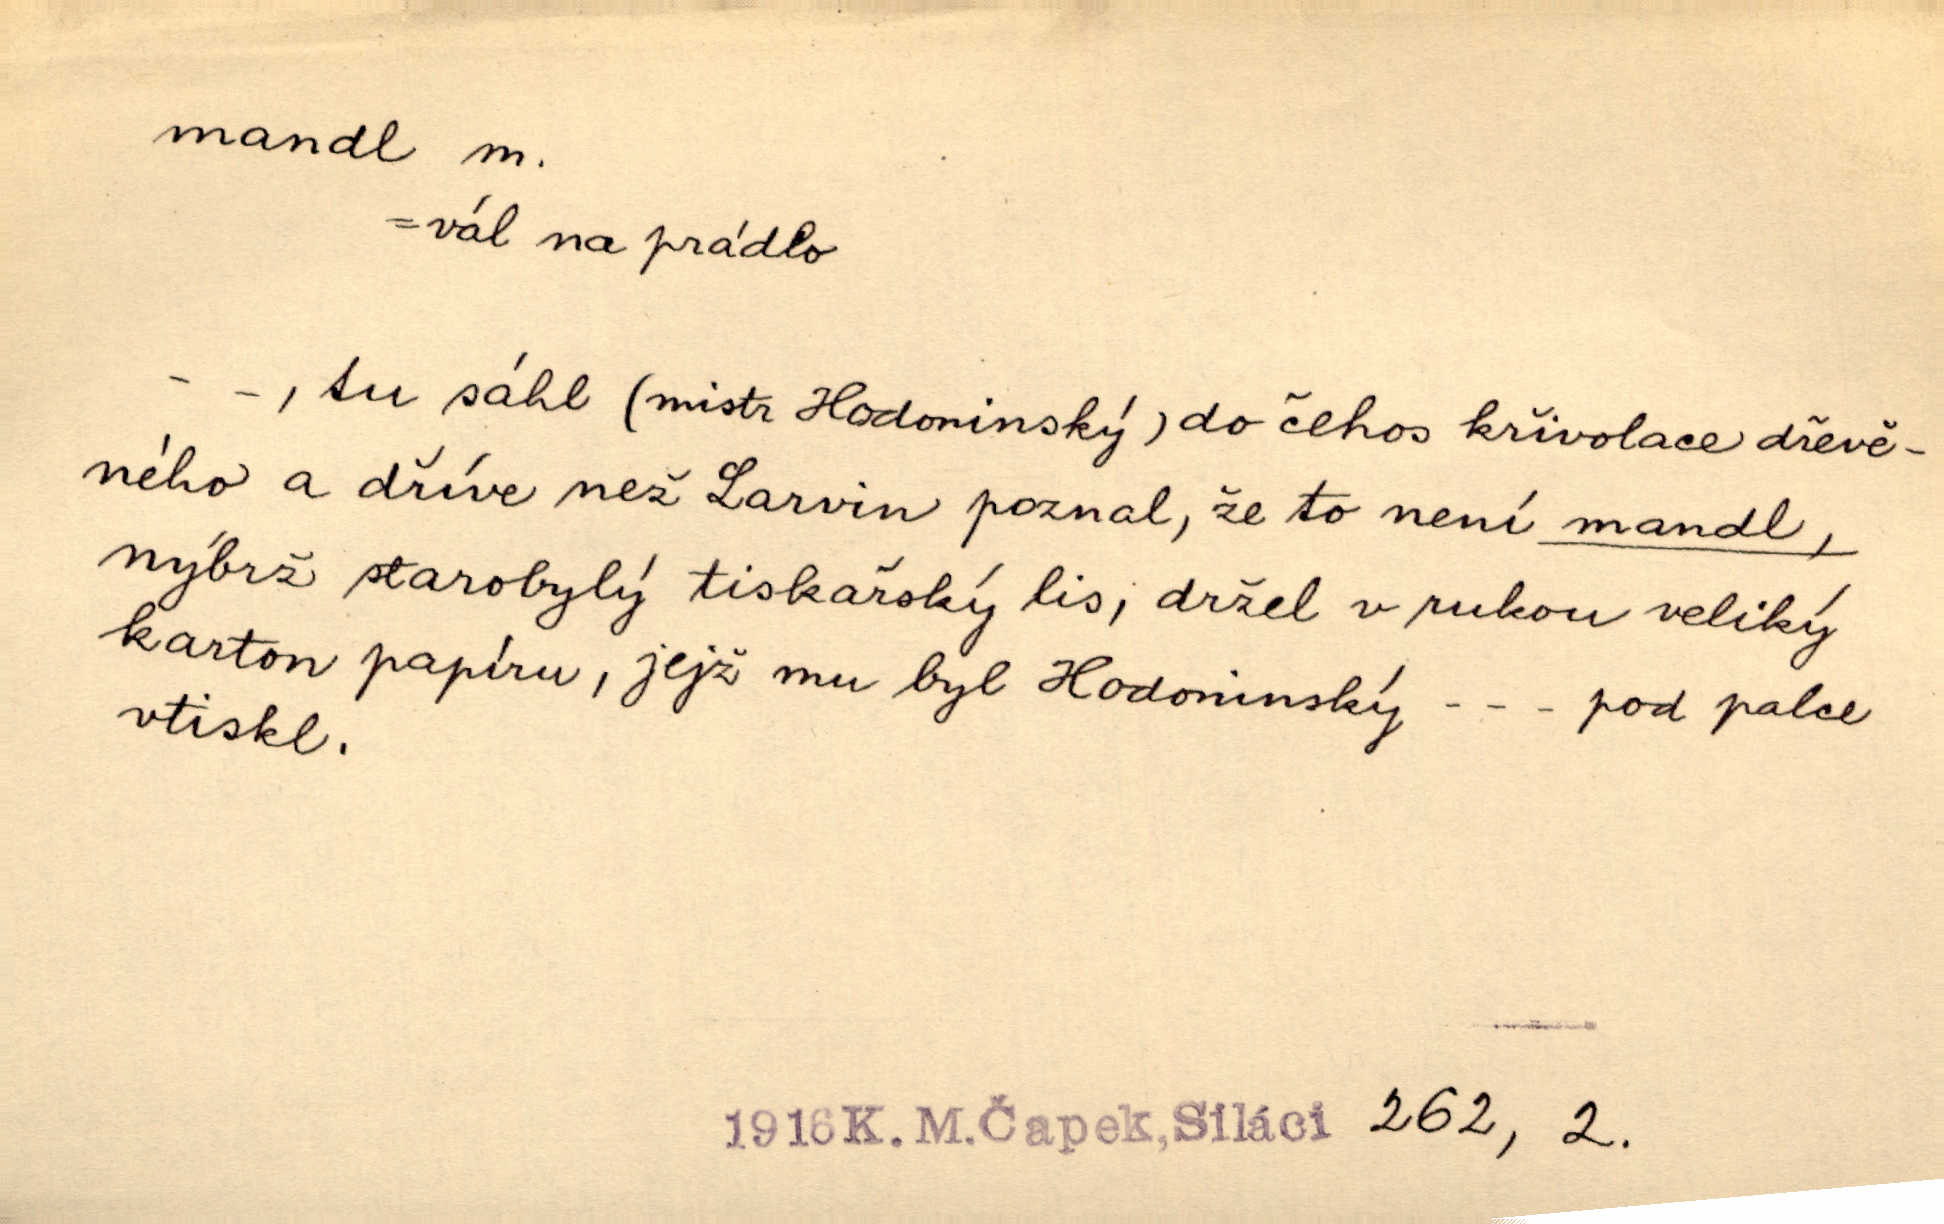 mandl m.
=vál na prádlo
- -, tu sáhl (mistr Hodoninský) do čehos křivolace dřevě-
ného a dříve než Larvin poznal, že to není mandl,
nýbrž starobylý tiskařský lis, držel v rukou veliký
karton papíru, jejž mu byl Hodoninský - - - pod palce
vtiskl.
1916 K. M. Čapek, Siláci 262, 2.